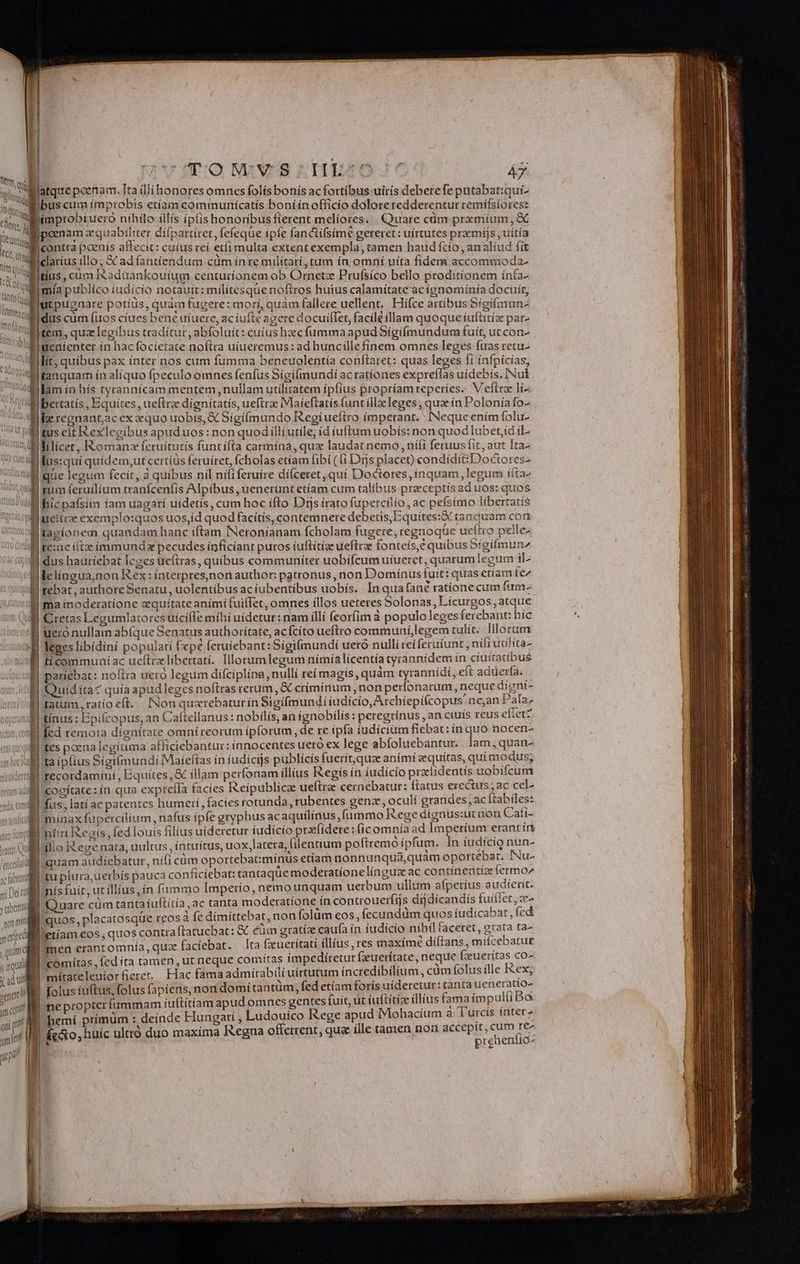 TOMVS III. 47
atque pœnam. Ita illi honores omnes solis bonis ac fortibus uiris debere se putabat: qui-
bus cum improbis etiam communicatis boni in officio dolore redderentur remissiores:
improbi uero nihilo illis ipsis honoribus fierent meliores. Quare cùm præmium, &
pœnam æquabiliter dispartiret, seseque ipse sanctissimè gereret: uirtutes præmijs, uitia
contrà pœnis affecit: cuius rei etsi multa extent exempla, tamen haud scio, an aliud sit
clarius illo, & ad sentiendum cùm in re militari, tum in omni uita fidem accommoda-
tius, cùm Raduankouium centurionem ob Ornetæ Prussico bello proditionem infa-
mia publico iudicio notauit: milites que nostros huius calamitate ac ignominia docuit,
ut pugnare potiùs, quàm fugere: mori, quàm fallere uellent. Hisce artibus Sigismun-
dus cùm suos ciues bene uiuere, ac iustè agere docuisset, facilè illam quoque iustitiæ par-
tem, quæ legibus traditur, absoluit: cuius hæc summa apud Sigismundum fuit, ut con-
uenienter in hac societate nostra uiueremus: ad hunc ille finem omnes leges suas retu-
lit, quibus pax inter nos cum summa beneuolentia constaret: quas leges si inspicias,
tanquam in aliquo speculo omnes sensus Sigismundi ac rationes expressas uidebis. Nul
lam in his tyrannicam mentem, nullam utilitatem ipsius propriam reperies. Vestræ li-
bertatis, Equites, uestræ dignitatis, uestræ Maiestatis sunt illæ leges, quæ in Polonia so-
læ regnant, ac ex æquo uobis, & Sigismundo Regi uestro imperant. Neque enim solu-
tus est Rex legibus apud uos: non quod illi utile, id iustum uobis: non quod lubet, id il-
lilicet, Romanæ seruitutis sunt ista carmina, quæ laudat nemo, nisi seruus sit, aut Ita-
lus: qui quidem, ut certiùs seruiret, scholas etiam sibi (si Dijs placet) condidit: Doctores-
que legum fecit, à quibus nil nisi seruire disceret, qui Doctores, inquam, legum ista-
rum seruilium transcensis Alpibus, uenerunt etiam cum talibus præceptis ad uos: quos
hic passim iam uagari uidetis, cum hoc isto Dijs irato supercilio, ac pessimo libertatis
uestræ exemplo: quos uos, id quod facitis, contemnere debetis, Equites: & tanquam con
tagionem quandam hanc istam Neronianam scholam fugere, regnoque uestro pelle-
re: ne istæ immundæ pecudes inficiant puros iustitiæ uestræ fonteis, è quibus Sigismun-
dus hauriebat leges uestras, quibus communiter uobiscum uiueret, quarum legum il-
le lingua, non Rex: interpres, non author: patronus, non Dominus fuit: quas etiam fe-
rebat, authore Senatu, uolentibus ac iubentibus uobis. In qua sanè ratione cum sum-
ma moderatione æquitate animi fuisset, omnes illos ueteres Solonas, Licurgos, atque
Cretas Legumlatores uicisse mihi uidetur: nam illi seorsim à populo leges ferebant: hic
uerò nullam absque Senatus authoritate, ac scito uestro communi, legem tulit. Illorum
leges libidini populari sæpe seruiebant: Sigismundi uerò nulli rei seruiunt, nisi utilita-
ti communi ac uestræ libertati. Illorum legum nimia licentia tyrannidem in ciuitatibus
pariebat: nostra uerò legum disciplina, nulli rei magis, quàm tyrannidi, est aduersa.
Quid ita? quia apud leges nostras rerum, & criminum, non personarum, neque digni-
tatum, ratio est. Non quærebatur in Sigismundi iudicio, Archiepiscopus' ne, an Pala-
tinus: Episcopus, an Castellanus: nobilis, an ignobilis: peregrinus, an ciuis reus esset?
sed remota dignitate omni reorum ipsorum, de re ipsa iudicium fiebat: in quo nocen-
tes pœna legitima afficiebantur: innocentes uerò ex lege absoluebantur. Iam, quan-
ta ipsius Sigismundi Maiestas in iudicijs publicis fuerit, quæ animi æquitas, qui modus;
recordamini, Equites, & illam personam illius Regis in iudicio præsidentis uobiscum
cogitate: in qua expressa facies Reipublicæ uestræ cernebatur: status erectus, ac cel-
sus, lati ac patentes humeri, facies rotunda, rubentes genæ, oculi grandes, ac stabiles:
minax supercilium, nasus ipse gryphus ac aquilinus, summo Rege dignus: ut non Cati-
nisiri Regis, sed Iouis filius uideretur iudicio præsidere: si c omnia ad Imperium erant in
illo Rege nata, uultus, intuitus, uox, latera, silentium postremò ipsum. In iudicio nun-
quam audiebatur, nisi cùm oportebat: minùs etiam nonnunquã, quàm oportebat. Nu-
tu plura, uerbis pauca conficiebat: tantaque moderatione linguæ ac continentiæ sermo-
nis fuit, ut illius, in summo Imperio, nemo unquam uerbum ullum asperius audierit.
Quare cùm tanta iustitia, ac tanta moderatione in controuersijs dijdicandis fuisset, æ-
quos, placatosque reos à se dimittebat, non solùm eos, secundùm quos iudicabat, sed
etiam eos, quos contra statuebat: & cùm gratiæ causa in iudicio nihil faceret, grata ta-
men erant omnia, quæ faciebat. Ita seueritati illius, res maximè distans, miscebatur
comitas, sed ita tamen, ut neque comitas impediretur seueritate, neque seueritas co-
mitate leuior fieret. Hac fama admirabili uirtutum incredibilium, cùm solus ille Rex,
solus iustus, solus sapiens, non domi tantùm, sed etiam foris uideretur: tanta ueneratio-
ne propter summam iustitiam apud omnes gentes fuit, ut iustitiæ illius fama impulsi Bo
hemi primùm: deinde Hungari, Ludouico Rege apud Mohacium à Turcis inter-
fecto, huic ultrò duo maxima Regna offerrent, quæ ille tamen non accepit, cum re-
prehensio-